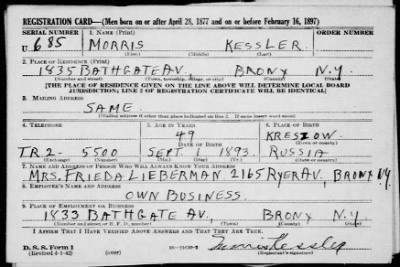 REGISTRATION CARD—(Men born on or after April 28, 1877 and on or before February 16, 1897)
SERIAL NUMBER 1. NAME (Print) ORDER NUMBER (Print)
U 685 MORRIS KESSLER
(First) (Middle) (Last)
2. PLACE OF RESIDENCE (Print)
1835 BATHGATE AV. BRONX N.Y.
(Number and street) (Town, township, village, or city) (County) (State)
[THE PLACE OF RESIDENCE GIVEN ON THE LINE ABOVE WILL DETERMINE LOCAL BOARD
JURISDICTION; LINE 2 OF REGISTRATION CERTIFICATE WILL BE IDENTICAL]
3. MAILING ADDRESS
SAME.
[Mailing address if other than place indicated on line 2. If same insert word same]
4. TELEPHONE 5. AGE IN YEARS 6. PLACE OF BIRTH
49 KRESZOW
DATE OF BIRTH (Town or county)
TR.2- 5500 SEPT 1 1893. RUSSIA
(Exchange) (Number) (Mo.) (Day) (Yr.) (State or country)
7. NAME AND ADDRESS OF PERSON WHO WILL ALWAYS KNOW YOUR ADDRESS
MRS. FRIEDA LIEBERMAN 2165 RYER AV, BRONX N.Y.
8. EMPLOYER'S NAME AND ADDRESS
OWN BUSINESS.
9. PLACE OF EMPLOYMENT OR BUSINESS
1833 BATHGATE AV, BRONX N.Y.
(Number and street or R. F. D. number) (Town) (County) (State)
I AFFIRM THAT I HAVE VERIFIED ABOVE ANSWERS AND THAT THEY ARE TRUE.
D. S. S. Form 1
(Revised 4-1-42) (over) (Registrant's signature)